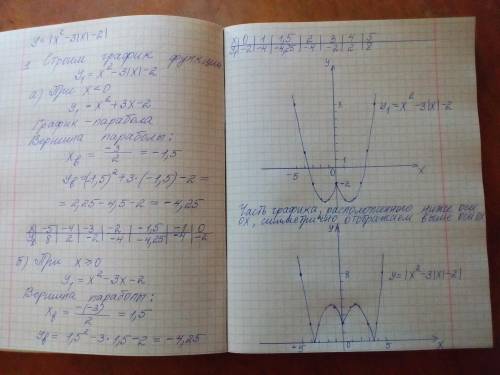 y=|x²-3|x|-2|
1. Строим график функции
y₁=x²-3|x|-2
а) При x<0
y₁=x²+3x-2
График - парабола
Вершина параболы:
xв = -3/2 = -1,5
yв=(-1,5)²+3·(-1,5)-2=
= 2,25-4,5-2 = -4,25
x | -5 | -4 | -3 | -2 | -1,5 | -1 | 0
y₁ | 8 | 2 | -2 | -4 | -4,25 | -4 | -2
б) При x≥0
y₁=x²-3x-2
Вершина параболы:
xв = -(-3)/2 = 1,5
yв = 1,5²-3·1,5-2 = -4,25
x | 0 | 1 | 1,5 | 2 | 3 | 4 | 5
y₁ | -2 | -4 | -4,25 | -4 | -2 | 2 | 8
y
8
y₁=x²-3|x|-2
1
-5 0 5 x
-2
Часть графика, расположенного ниже оси
ox, симметрично отображаем выше оси ox
y
8
y=|x²-3|x|-2|
-5 0 5 x